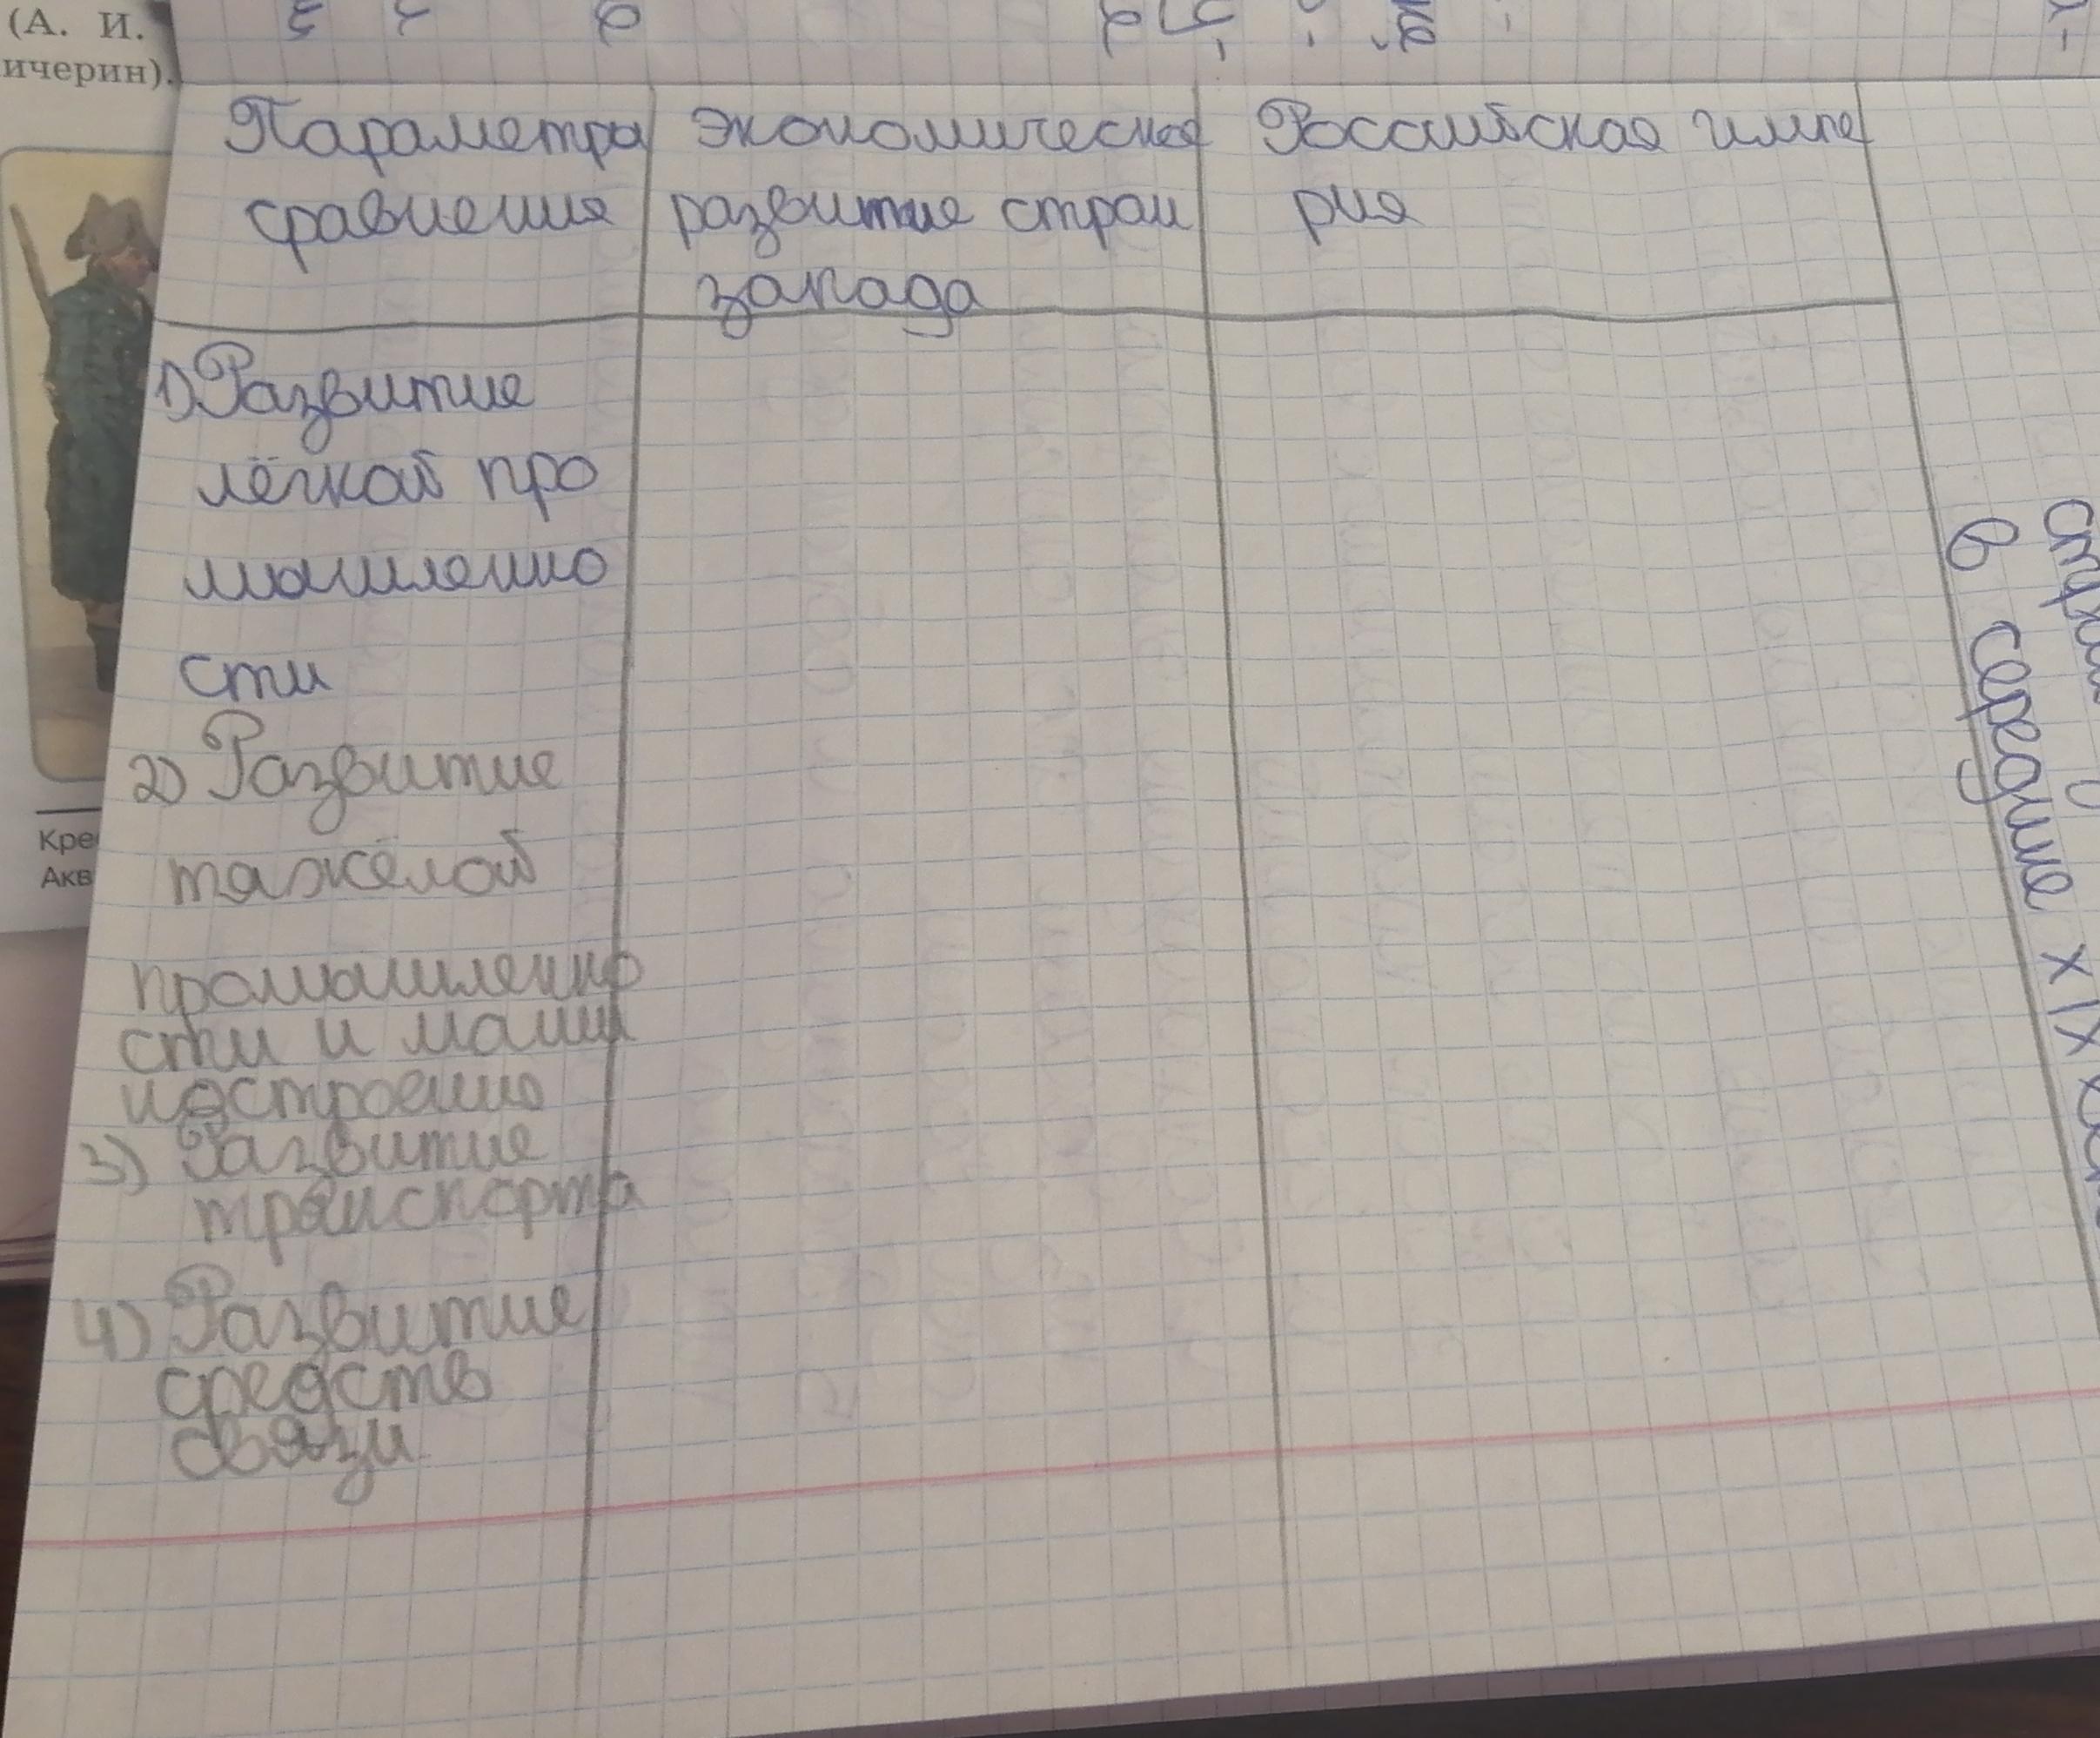 (А. И.
ичерин).
Параметры
сравнения
экономическое
развитие стран
запада
Российская импе
рия
1) Развитие
лёгкой про
мышленно
сти
2) Развитие
тяжёлой
промышленно
сти и маши
ностроение
3) Развитие
транспорта
4) Развитие
средств
связи
Кре
Акв
стран
в середине XIX